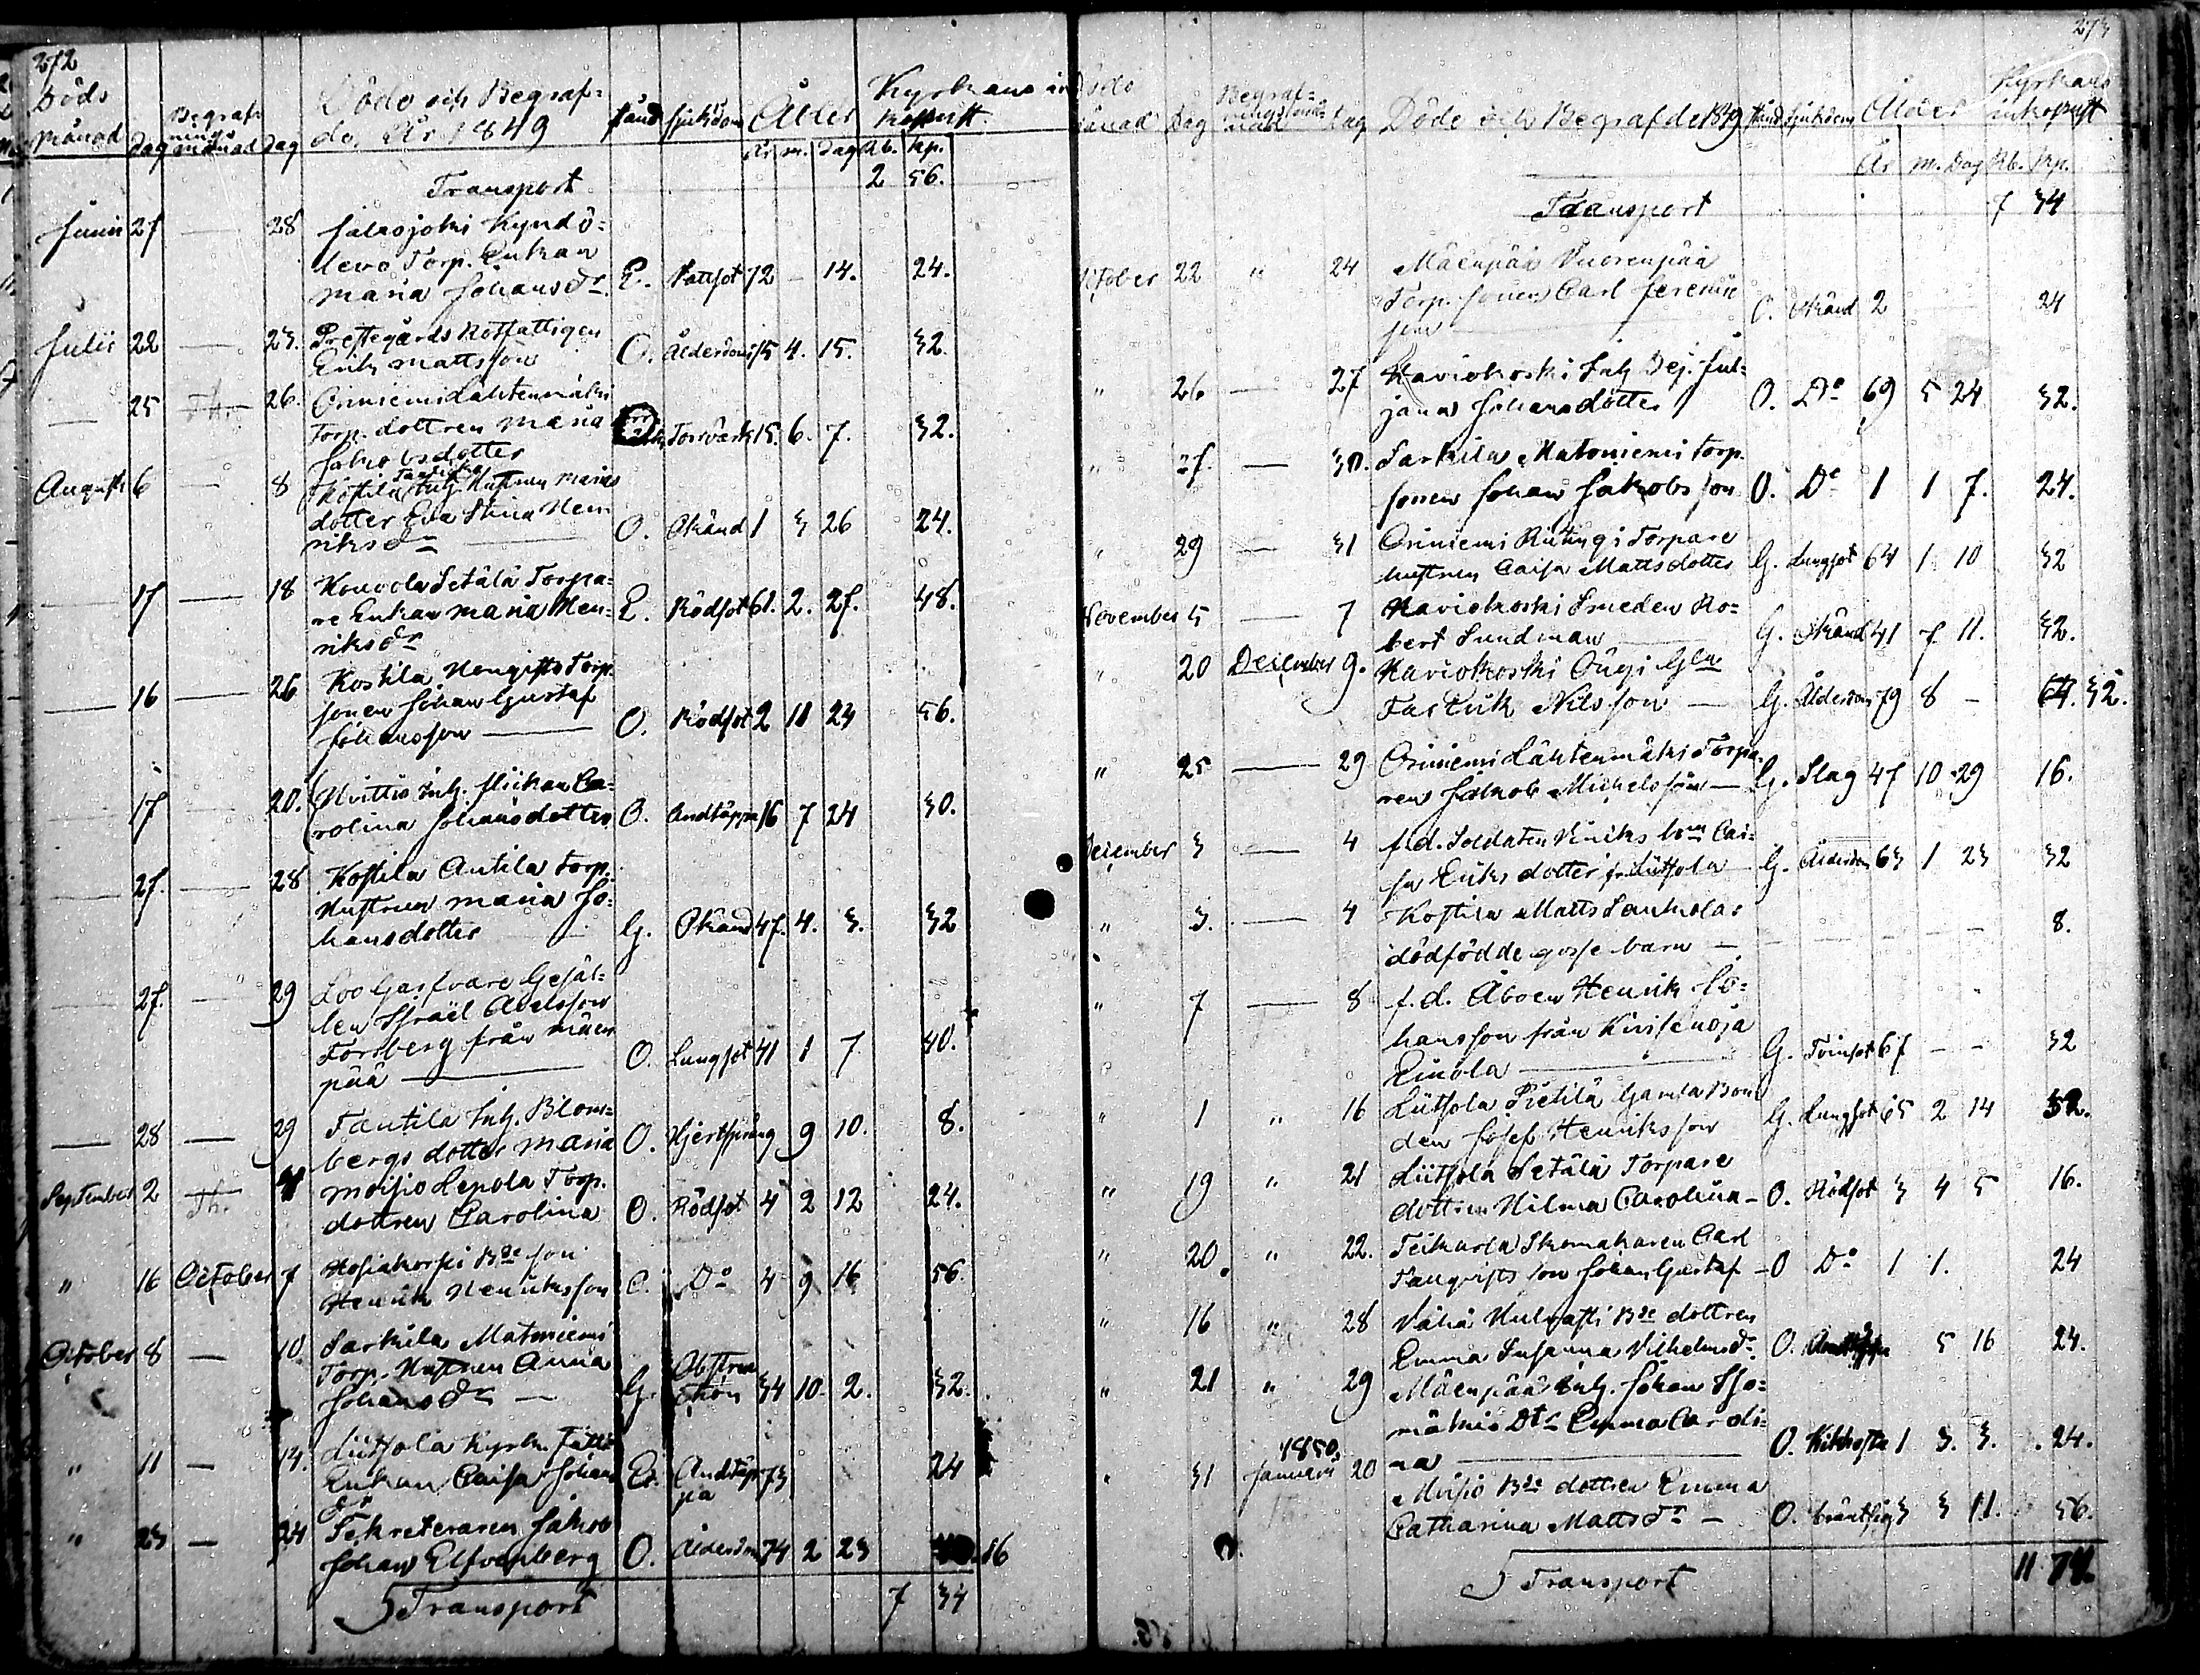 272
Döds månad Dag Begrafnings månad Dag Döde och Begraf-
do. År 1849 stånd sjukdom Ålder Kyrkans in
komst.
År. m. Dag Rb. kp.
Transport 2 56.
Junii 27 — 28 Jalasjoki Kyndö-
levo Torp. Enkan
Maria Johansdr. E. Vattsot 72 - 14. 24.
Julii 22 — 23. Prestegårds Rotfattigen
Erik Mattsson O. Ålderdom 75 4. 15. 32.
— 25 — 26. Oriniemi Lähtenmäki
Torp. dottren Maria Torrvärk 15. 6. 7. 32.
Jakobsdotter
Augusti 6 — 8 Kostila Inh. Hustrun Marias
dotter Eva Stina Hen-
riksdr — O. Okänd 1 3 26 24.
— 17 — 18 Kouvola Setälä Torpa-
re Enkan Maria Hen-
riksdr E. Rödsot 61. 2. 27. 48.
— 16 — 26 Kostila Nougifts Torp.
sonen Johan Gustaf
Johansson — O. Rödsot 2 11 23 56.
17 — 20. Hvittis Inh. flickan Ca-
rolina Johansdotter O. Andtäppa 16 7 24 30.
— 27. — 28 Kostila Antila Torp.
Hustrun Maria Jo-
hansdotter G. Okänd 47. 4. 3. 32
— 27. — 29 Loo Garfvare Gesäl-
len Israël Abelsson
Forsberg från Mäen-
pää — O. Lungsot 41 1 7. 40.
— 28 — 29 Tantila Inh. Blom-
bergs dotter Maria O. Hjertsprång 9 10. 8.
September 2 — 4 Moisio Lepola Torp.
dottren Carolina O. Rödsot 4 2 12 24.
" 16 October 7 Hosiakorpi Bde son
Henrik Henriksson O. Do 4 9 16 56.
October 8 — 10 Sarkila Matoniemi
Torp. Hustrun Anna
Johansdr — G. Obstruktion 34 10. 2. 32.
" 11 — 14. Liitsola Kyrko fattig
Enkan Caisa Johans
dr E. Andtäp-
pa 73 24
" 23 — 24 Sekreteraren Jakob
Johan Elfvenberg O. Ålderdom 74 2 23 16
Transport 7 34
273
Döds månad Dag Begrafnings månad dag Döde och Begrafde 1849 stånd Sjukdom Ålder Kyrkans inkomst
År m. Dag Rb. kp.
Transport 7 34
October 22 " 24 Mäenpää Vuorenpää
Torp. sonen Carl Jeremi
son O. Okänd 2 24
" 26 — 27 Kaviokoski Inh. Dej. Jul-
jana Johansdotter O. Do 69 5 24 32.
" 27. — 30. Sarkila Matoniemi Torp.
sonen Johan Jakobsson O. Do 1 1 7. 24.
" 29 — 31 Oriniemi Riitingi Torpare
hustrun Caisa Mattsdotter G. Lungsot 64 1 10 32
November 5 — 7 Kaviokoski Smeden Ro-
bert Sundman G. Okänd 41 7. 11. 32.
" 20 December 9. Kaviokoski Ougi Gla
Far Erik Nilsson — G. Ålderdom 79 8 - 64. 32.
" 25 — 29 Oriniemi Lähtenmäki Torpa-
ren Jakob Michelsson — G. Slag 47 10 29 16.
December 3 — 4 f.d. Soldaten Viriks Enka Cai-
sa Eriksdotter fr. Liitsola G. Ålderdom 63 1 23 32
" 3. — 4 Kostila Matts Saukolas
dödfödde gosse barn — 8.
" 7 — 8 f.d. Åboen Henrik Jo-
hansson från Kirisenoja
Einola — G. Tvinsot 67 - - 32
" 1 " 16 Liitsola Pietilä Gamla Bon
den Josef Henriksson G. Lungsot 65 2 14 32.
" 19 " 21 Liitsola Setälä Torpare
dottren Vilma Carolina — O. Rödsot 3 4 5 16.
" 20. " 22. Teikarla Skomakaren Carl
Tanqvists son Johan Gustaf — O Do 1 1. 24
" 16 " 28 Vähä Huhrasti Bde dottren
Emma Susanna Vilhelmsdr. O. 5 16 24.
" 21 " 29 Mäenpää Inh. Johan Iso-
mäkis Dtr Emma Caroli-
na — O. Kikhosta 1 3. 3. 24.
" 31 1850. Januari 20 Moisio Bde dottren Emma
Catharina Mattsdr — O. 3 3 11. 56.
Transport 11 74.